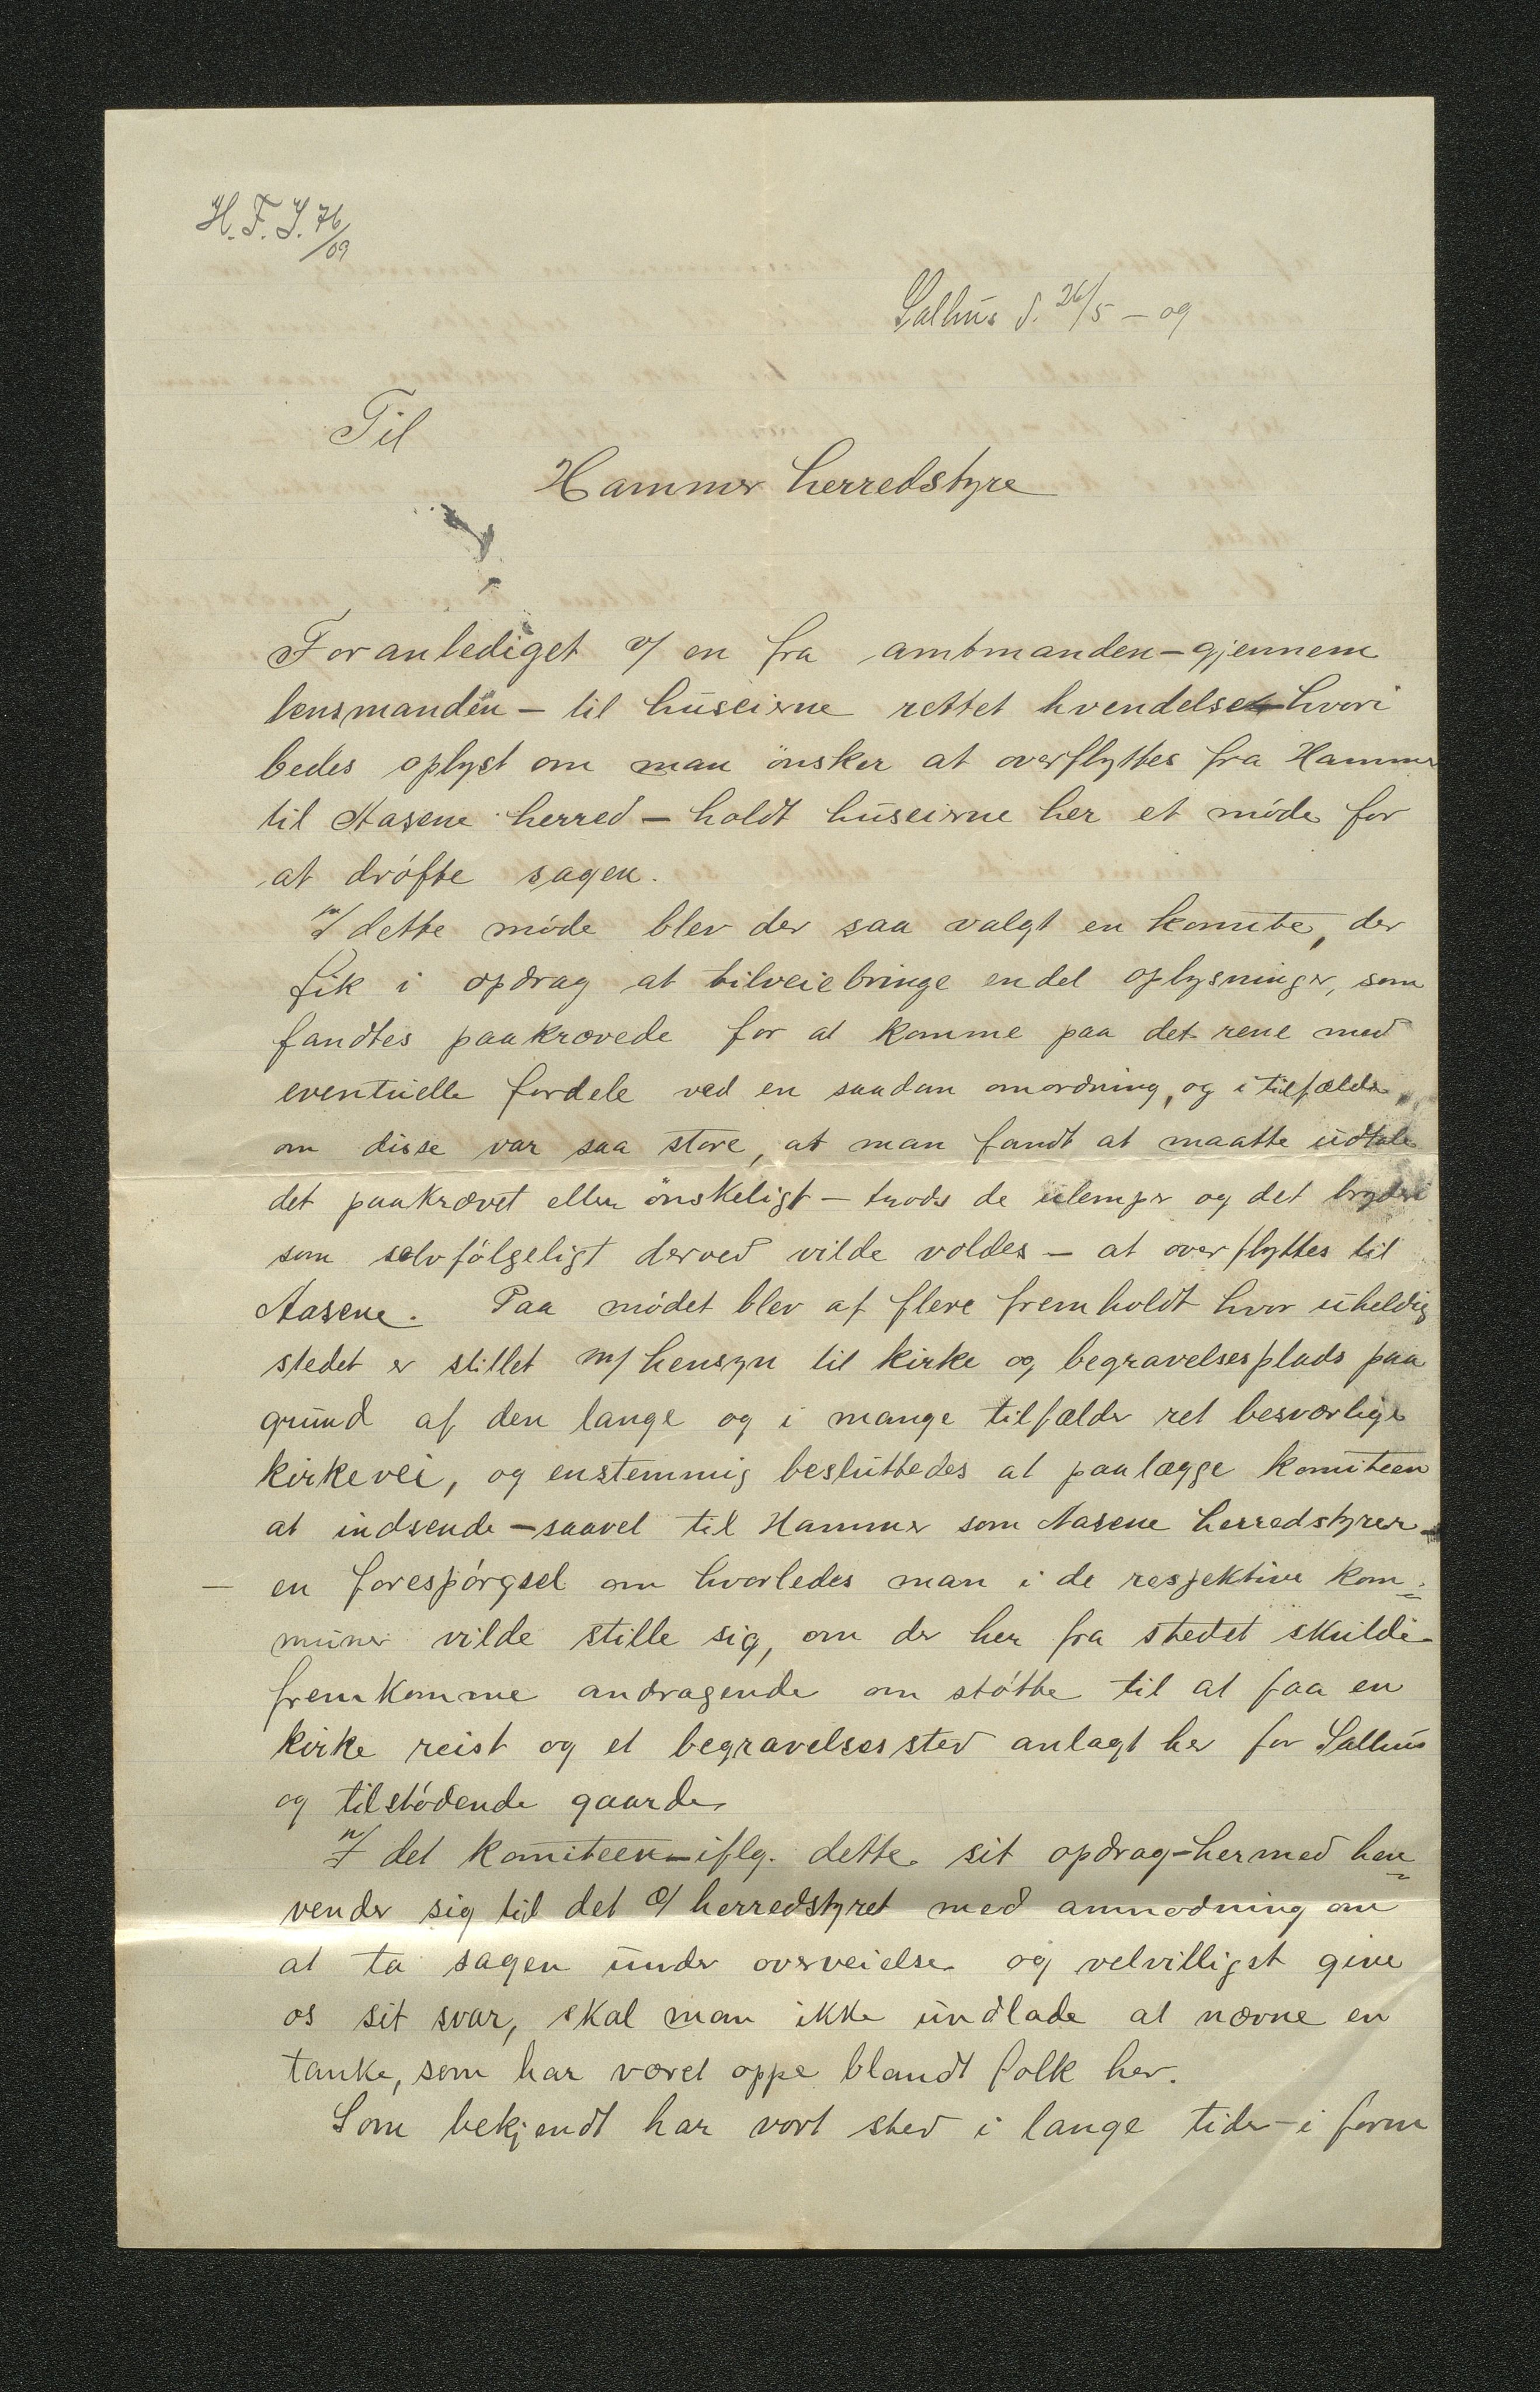 H. F. J. 76/09
Salhus d. 26/5 – 09
Til
Hammer herredstyre
Foranlediget v/ en fra amtmanden – gjennem
lensmanden – til huseierne rettet hvendelse hvori
bedes oplyst om man ønsker at overflyttes fra Hammer
til Aasene herred – holdt huseierne her et møde for
at drøfte sagen.
I dette møde blev der saa valgt en komite, der
fik i opdrag at tilveiebringe endel oplysninger, som
fandtes paakrævede for at komme paa det rene med
eventuelle fordele ved en saadan omordning, og i tilfælde
om disse var saa store, at man fandt at maatte udtale
det paakrævet eller ønskeligt – trods de ulemper og det bryderi
som selvfølgeligt derved vilde voldes – at overflyttes til
Aasene. Paa mødet blev af flere fremholdt hvor uheldig
stedet er stillet m/ hensyn til kirke og begravelsesplads paa
grund af den lange og i mange tilfælder ret besværlige
kirkevei, og enstemmig besluttedes at paalægge komiteen
at indsende – saavel til Hammer som Aasene herredstyrer –
– en forespørgsel om hvorledes man i de respektive kom=
muner vilde stille sig, om der her fra stedet skulde
fremkomme andragende om støtte til at faa en
kirke reist og et begravelsessted anlagt her for Salhus
og tilstødende gaarde.
I det komiteen – iflg. dette sit opdrag – hermed hen=
vender sig til det ø/ herredstyret med anmodning om
at ta sagen under overveielse og velvilligst give
os sit svar, skal man ikke undlade at nævne en
tanke, som har været oppe blandt folk her.
Som bekjendt har vort sted i lange tider – i form